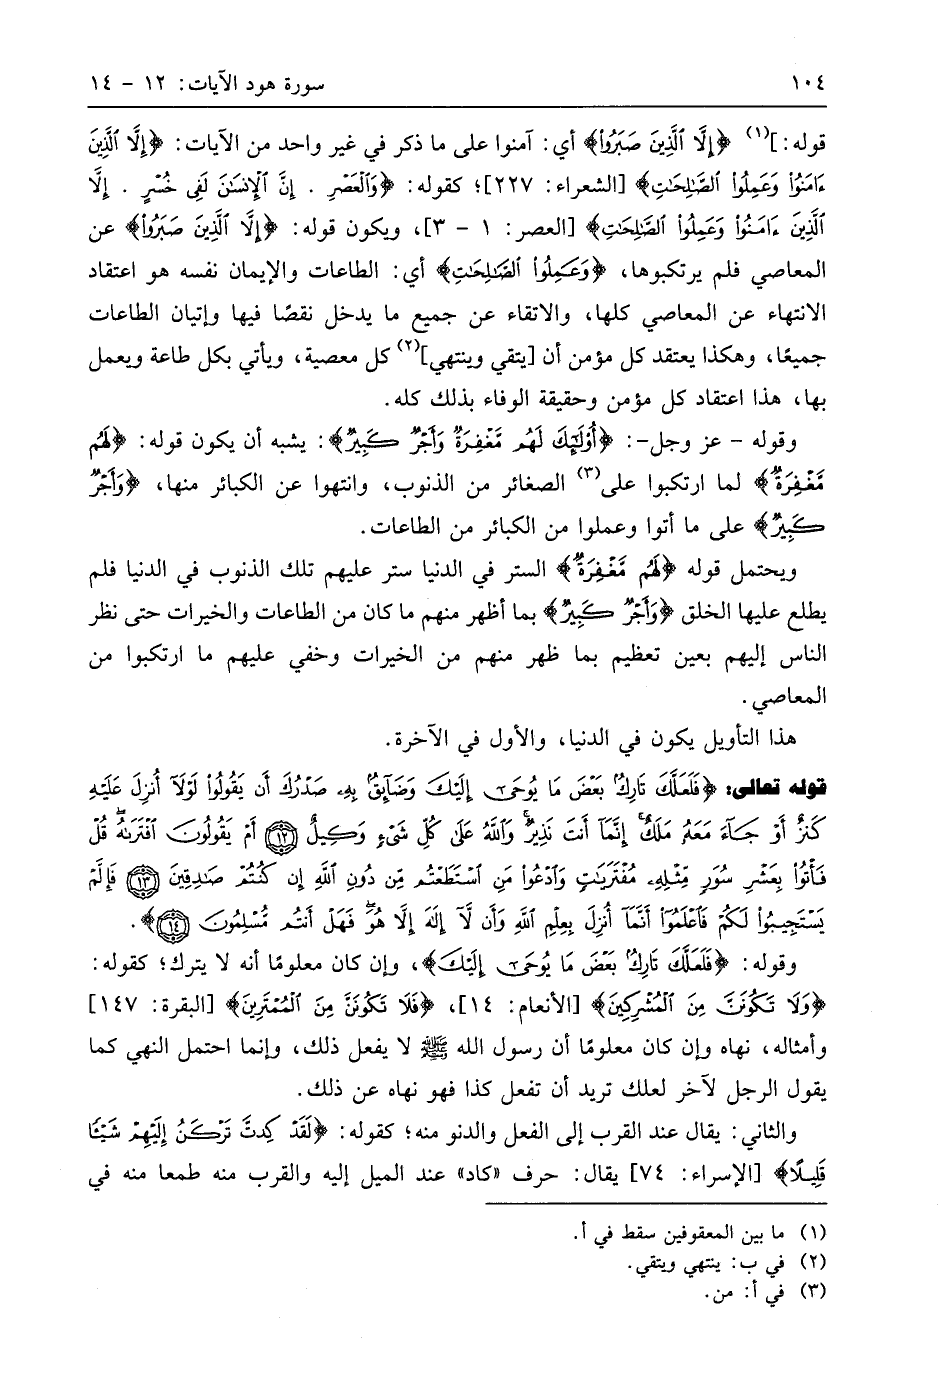 ١٠٤ سورة هود الآيات: ١٢ – ١٤
قوله:](١) ﴿إِلَّا ٱلَّذِينَ صَبَرُوا۟﴾ أي: آمنوا على ما ذكر في غير واحد من الآيات: ﴿إِلَّا ٱلَّذِينَ
ءَامَنُوا۟ وَعَمِلُوا۟ ٱلصَّـٰلِحَـٰتِ﴾ [الشعراء: ٢٢٧]؛ كقوله: ﴿وَٱلْعَصْرِ . إِنَّ ٱلْإِنسَـٰنَ لَفِى خُسْرٍ . إِلَّا
ٱلَّذِينَ ءَامَنُوا۟ وَعَمِلُوا۟ ٱلصَّـٰلِحَـٰتِ﴾ [العصر: ١ – ٣]، ويكون قوله: ﴿إِلَّا ٱلَّذِينَ صَبَرُوا۟﴾ عن
المعاصي فلم يرتكبوها، ﴿وَعَمِلُوا۟ ٱلصَّـٰلِحَـٰتِ﴾ أي: الطاعات والإيمان نفسه هو اعتقاد
الانتهاء عن المعاصي كلها، والاتقاء عن جميع ما يدخل نقصًا فيها وإتيان الطاعات
جميعًا، وهكذا يعتقد كل مؤمن أن [يتقي وينتهي](٢) كل معصية، ويأتي بكل طاعة ويعمل
بها، هذا اعتقاد كل مؤمن وحقيقة الوفاء بذلك كله.
وقوله – عز وجل–: ﴿أُو۟لَـٰٓئِكَ لَهُم مَّغْفِرَةٌ وَأَجْرٌ كَبِيرٌ﴾: يشبه أن يكون قوله: ﴿لَهُم
مَّغْفِرَةٌ﴾ لما ارتكبوا على(٣) الصغائر من الذنوب، وانتهوا عن الكبائر منها، ﴿وَأَجْرٌ
كَبِيرٌ﴾ على ما أتوا وعملوا من الكبائر من الطاعات.
ويحتمل قوله ﴿لَهُم مَّغْفِرَةٌ﴾ الستر في الدنيا ستر عليهم تلك الذنوب في الدنيا فلم
يطلع عليها الخلق ﴿وَأَجْرٌ كَبِيرٌ﴾ بما أظهر منهم ما كان من الطاعات والخيرات حتى نظر
الناس إليهم بعين تعظيم بما ظهر منهم من الخيرات وخفي عليهم ما ارتكبوا من
المعاصي.
هذا التأويل يكون في الدنيا، والأول في الآخرة.
قوله تعالى: ﴿فَلَعَلَّكَ تَارِكٌۢ بَعْضَ مَا يُوحَىٰٓ إِلَيْكَ وَضَآئِقٌۢ بِهِۦ صَدْرُكَ أَن يَقُولُوا۟ لَوْلَآ أُنزِلَ عَلَيْهِ
كَنزٌ أَوْ جَآءَ مَعَهُۥ مَلَكٌ ۚ إِنَّمَآ أَنتَ نَذِيرٌ ۚ وَٱللَّهُ عَلَىٰ كُلِّ شَىْءٍ وَكِيلٌ ١٢ أَمْ يَقُولُونَ ٱفْتَرَىٰهُ ۖ قُلْ
فَأْتُوا۟ بِعَشْرِ سُوَرٍ مِّثْلِهِۦ مُفْتَرَيَـٰتٍ وَٱدْعُوا۟ مَنِ ٱسْتَطَعْتُم مِّن دُونِ ٱللَّهِ إِن كُنتُمْ صَـٰدِقِينَ ١٣ فَإِلَّمْ
يَسْتَجِيبُوا۟ لَكُمْ فَٱعْلَمُوٓا۟ أَنَّمَآ أُنزِلَ بِعِلْمِ ٱللَّهِ وَأَن لَّآ إِلَـٰهَ إِلَّا هُوَ ۖ فَهَلْ أَنتُم مُّسْلِمُونَ ١٤﴾.
وقوله: ﴿فَلَعَلَّكَ تَارِكٌۢ بَعْضَ مَا يُوحَىٰٓ إِلَيْكَ﴾، وإن كان معلومًا أنه لا يترك؛ كقوله:
﴿وَلَا تَكُونَنَّ مِنَ ٱلْمُشْرِكِينَ﴾ [الأنعام: ١٤]، ﴿فَلَا تَكُونَنَّ مِنَ ٱلْمُمْتَرِينَ﴾ [البقرة: ١٤٧]
وأمثاله، نهاه وإن كان معلومًا أن رسول الله ﷺ لا يفعل ذلك، وإنما احتمل النهي كما
يقول الرجل لآخر لعلك تريد أن تفعل كذا فهو نهاه عن ذلك.
والثاني: يقال عند القرب إلى الفعل والدنو منه؛ كقوله: ﴿لَقَدْ كِدتَّ تَرْكَنُ إِلَيْهِمْ شَيْـًٔا
قَلِيلًا﴾ [الإسراء: ٧٤] يقال: حرف «كاد» عند الميل إليه والقرب منه طمعا منه في
(١) ما بين المعقوفين سقط في أ.
(٢) في ب: ينتهي ويتقي.
(٣) في أ: من.